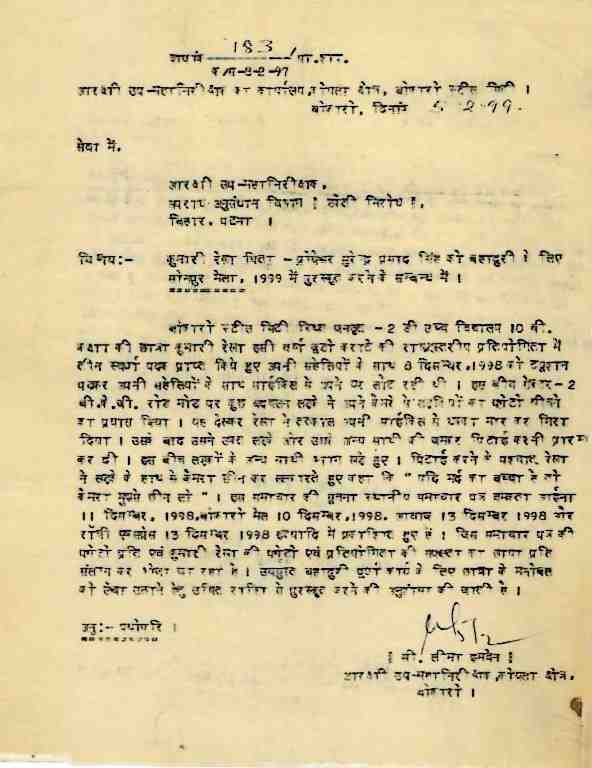 ज्ञापांक 183 /गो.शा.
आरक्षी उप-महानिरीक्षक का कार्यालय, कोयला क्षेत्र, बोकारो स्टील सिटी ।
बोकारो, दिनांक 5-2-99.
सेवा में,
आरक्षी उप-महानिरीक्षक,
अपराध अनुसंधान विभाग
बिहार, पटना ।
विषय:- कुमारी रेखा पिता - प्रोफेसर सुरेन्द्र प्रसाद सिंह को बहादुरी के लिए
सोनपुर मेला, 1999 में पुरस्कृत करने के सम्बन्ध में ।
बोकारो स्टील सिटी स्थित -2 डी उच्च विद्यालय 10 वी.
कक्षा की छात्रा कुमारी रेखा इसी वर्ष कराटे की राज्यस्तरीय प्रतियोगिता में
तीन स्वर्ण पदक प्राप्त किये हुए अपनी सहेलियों के साथ 8 दिसम्बर, 1998 को ट्यूशन
पढकर अपनी सहेलियों के साथ साईकिल से अपने घर लौट रही थी । इस बीच सेक्टर-2
रोड मोड पर कुछ लड़के ने अपने कैमरे से लड़कियों का फोटो खींचने
का प्रयास किया । यह देखकर रेखा ने तत्काल अपनी साईकिल से धक्का मार कर गिरा
दिया । उसके बाद उसने उक्त लड़के और उसके अन्य साथी की जमकर पिटाई करनी प्रारम्भ
कर दी । इस बीच लड़कों के अन्य साथी भाग खड़े हुए । पिटाई करने के पश्चात् रेखा
ने लड़के के हाथ से कैमरा छीन कर ललकारते हुए कहा कि " यदि मर्द का बच्चा है तो
कैमरा मुझसे छीन लो " । इस समाचार की सूचना स्थानीय समाचार पत्र आईना
11 दिसम्बर, 1998, बोकारो मेल 10 दिसम्बर, 1998, आवाज 13 दिसम्बर 1998 और
राँची एक्सप्रेस 13 दिसम्बर 1998 इत्यादि में प्रकाशित हुए हैं । जिस समाचार पत्र की
फोटो प्रति एवं कुमारी रेखा की फोटो एवं प्रतियोगिता की सफलता का छाया प्रति
संलग्न कर भेजा जा रहा है । उपर्युक्त बहादुरी पूर्ण कार्य के लिए छात्रा के मनोबल
को ऊंचा उठाने हेतु उचित राशि से पुरस्कृत करने की अनुशंसा की जाती है ।
अनु:- यथोपरि ।
आरक्षी उप-महानिरीक्षक, कोयला क्षेत्र,
बोकारो ।